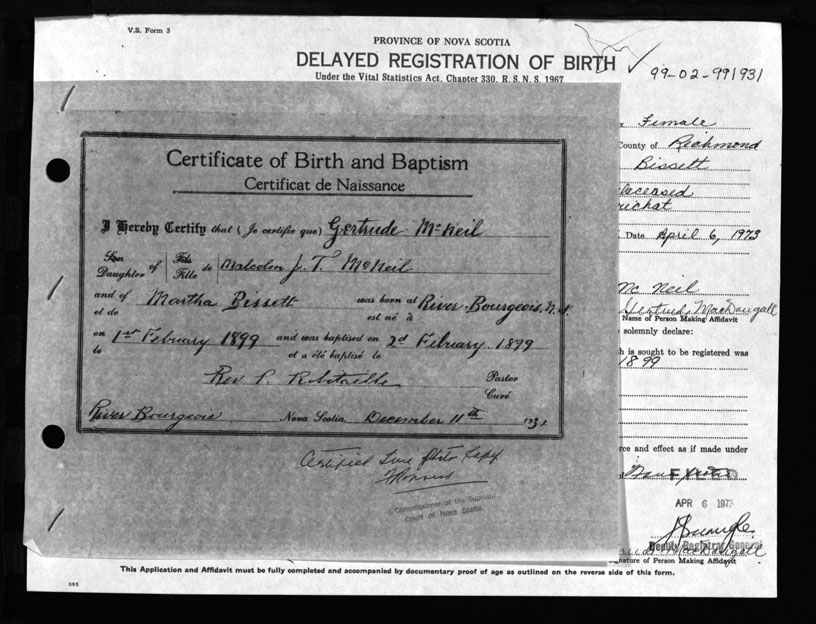 V.S. Form 3
PROVINCE OF NOVA SCOTIA
DELAYED REGISTRATION OF BIRTH
Under the Vital Statistics Act, Chapter 330, R.S.N.S. 1967
99-02-991931
Female
County of Richmond
Bissett
deceased
richat
Date April 6, 1973
Mc Neil
Gertrude MacDougall
Name of Person Making Affidavit
solemnly declare:
h is sought to be registered was
1899
rce and effect as if made under
FILED
APR 6 1973
Deputy Registrar General
MacDougall
Signature of Person Making Affidavit
Certificate of Birth and Baptism
Certificat de Naissance
I Hereby Certify that (Je certifie que) Gertrude McNeil
Son Daughter of Fils Fille de Malcolm J. T. McNeil
and of Martha Bissett was born at River Bourgeois, N.S.
et de est né à
on 1st February 1899 and was baptised on 2d February 1899
le et a été baptisé le
Rev P. Robitaille Pastor
Curé
River Bourgeois Nova Scotia, December 11th 1931
Certified True Photo Copy
Commissioner of the Supreme
Court of Nova Scotia
This Application and Affidavit must be fully completed and accompanied by documentary proof of age as outlined on the reverse side of this form.